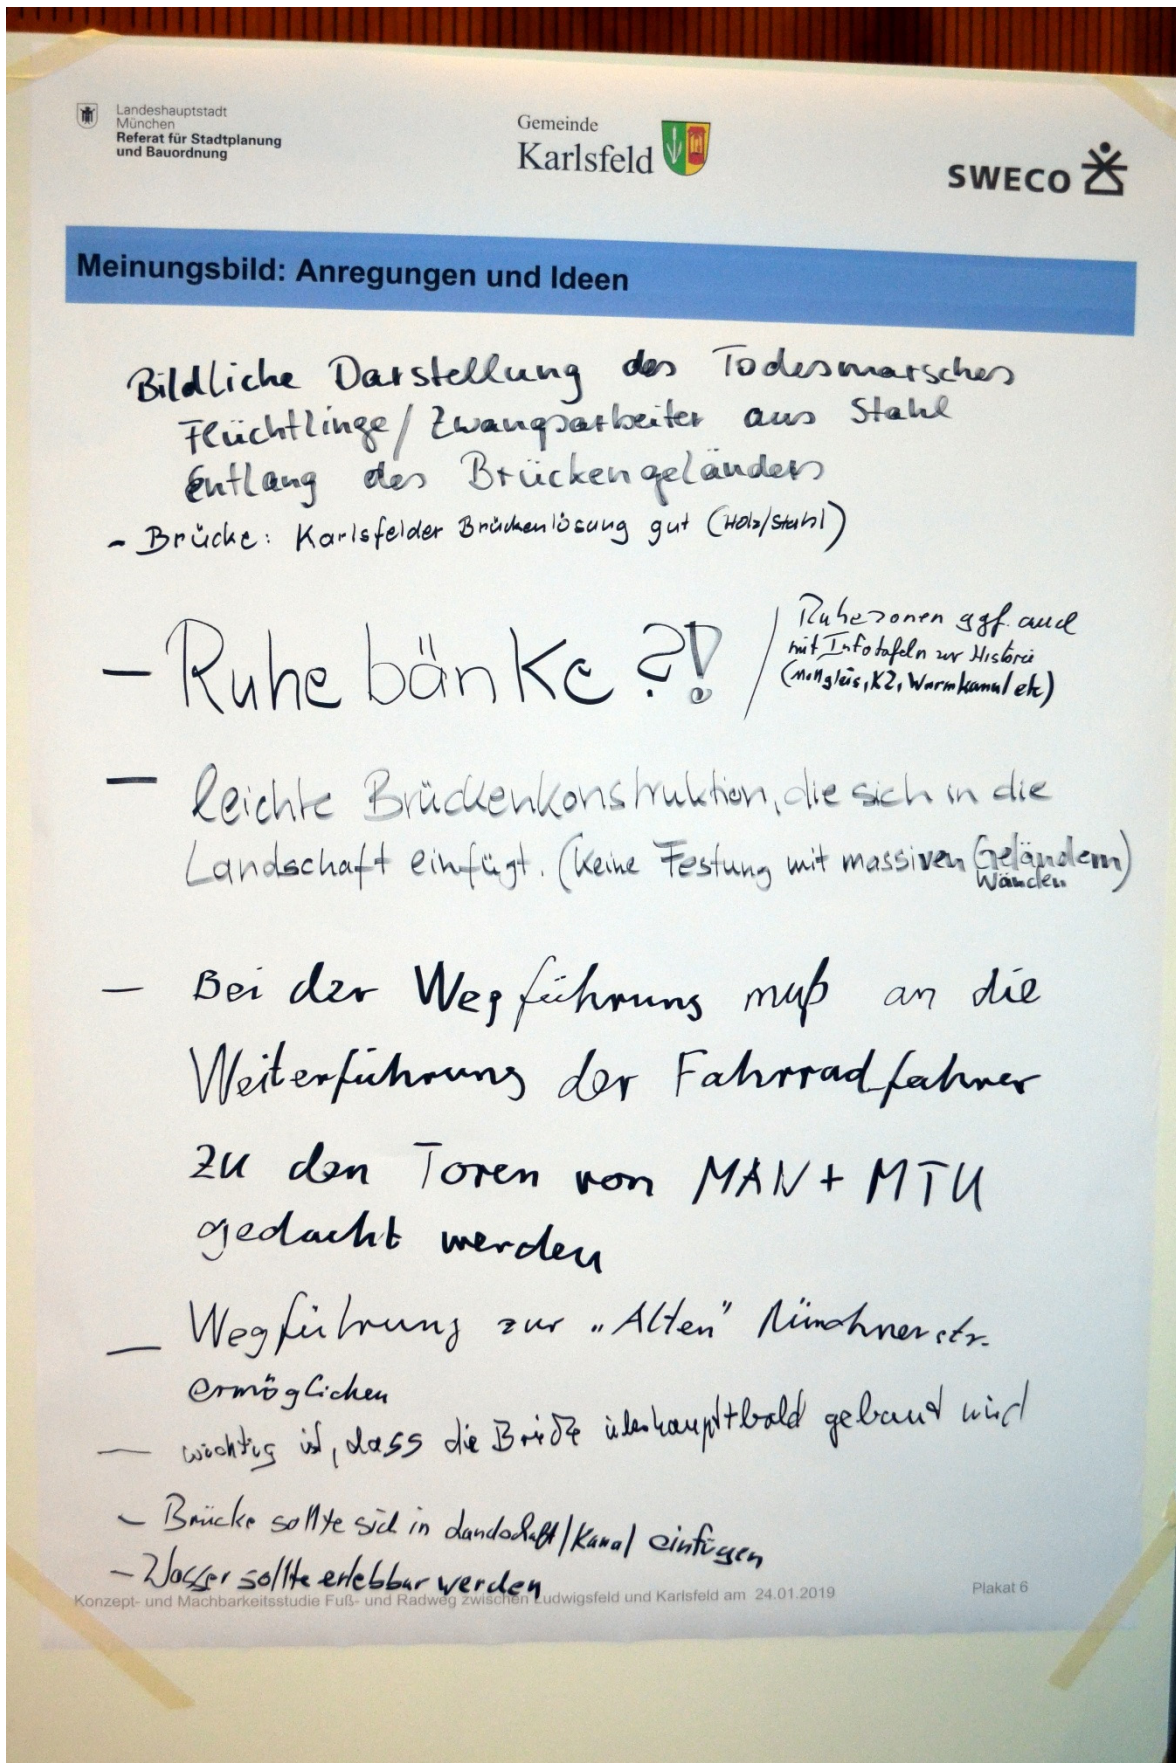 Landeshauptstadt
München
Referat für Stadtplanung
und Bauordnung
Gemeinde
Karlsfeld
SWECO
Meinungsbild: Anregungen und Ideen
Bildliche Darstellung des Todesmarsches
Flüchtlinge/Zwangsarbeiter aus Stahl
Entlang des Brückengeländers
- Brücke: Karlsfelder Brückenlösung gut (Holz/Stahl)
- Ruhebänke ?!
/ Ruhezonen ggf. auch
mit Infotafeln zur Historie
(KZ, Warmkanal etc)
- leichte Brückenkonstruktion, die sich in die
Landschaft einfügt. (Keine Festung mit massiven Geländern)
Wänden
- Bei der Wegführung muß an die
Weiterführung der Fahrradfahrer
zu den Toren von MAN + MTU
gedacht werden
- Wegführung zur "Alten" Münchner str.
ermöglichen
- wichtig ist, dass die Brücke überhaupt bald gebaut wird
- Brücke sollte sich in Landschaft/Kanal einfügen
- Wasser sollte erlebbar werden
Konzept- und Machbarkeitsstudie Fuß- und Radweg zwischen Ludwigsfeld und Karlsfeld am 24.01.2019
Plakat 6